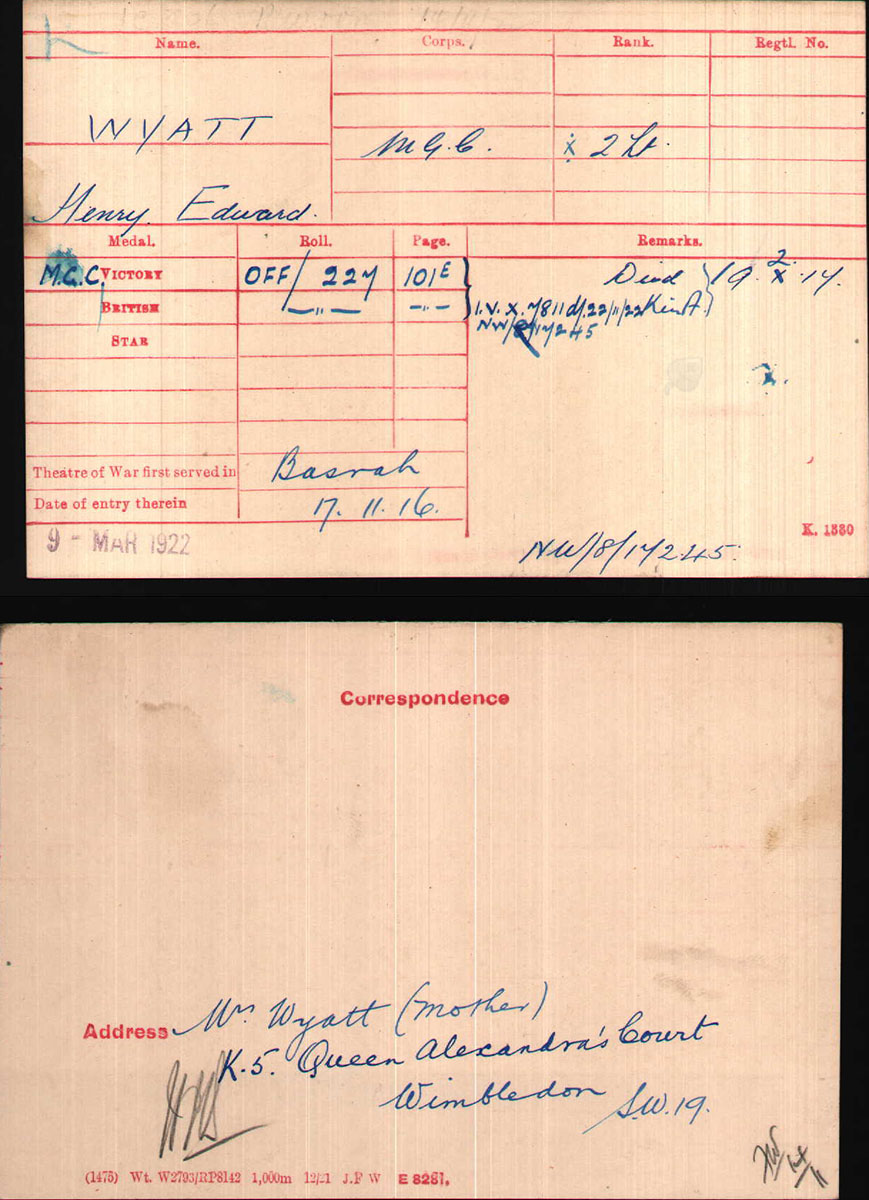 Name. Corps. Rank. Regtl. No.
WYATT
M.G.C. x 2 Lt.
Henry Edward.
Medal. Roll. Page. Remarks.
M.G.C. VICTORY OFF/227 101E Died 19.2.17.
BRITISH —"— —"— I.V.X. 7811 d/. 22/11/22
NW/8/17245
STAR
Theatre of War first served in Basrah
Date of entry therein 17.11.16.
9 - MAR 1922
K. 1380
NW/8/17245.
Correspondence
Address Mrs Wyatt (Mother)
K.5. Queen Alexandra's Court
Wimbledon S.W.19.
(1475) Wt. W2793/RP8142 1,000m 12/21 J.F W E 8281.